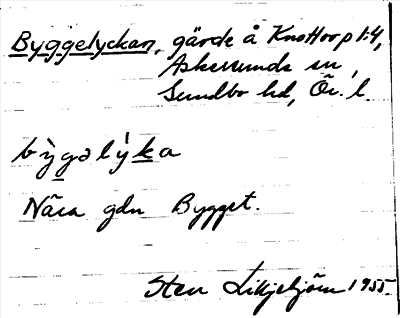 Byggelyckan, gärde å Knottorp 1:4,
Askersunds sn,
Sundbo hd, Ör. l.
bỳgəlý̱ka
Nära gdn Bygget.
Sten Liljebjörn 1955